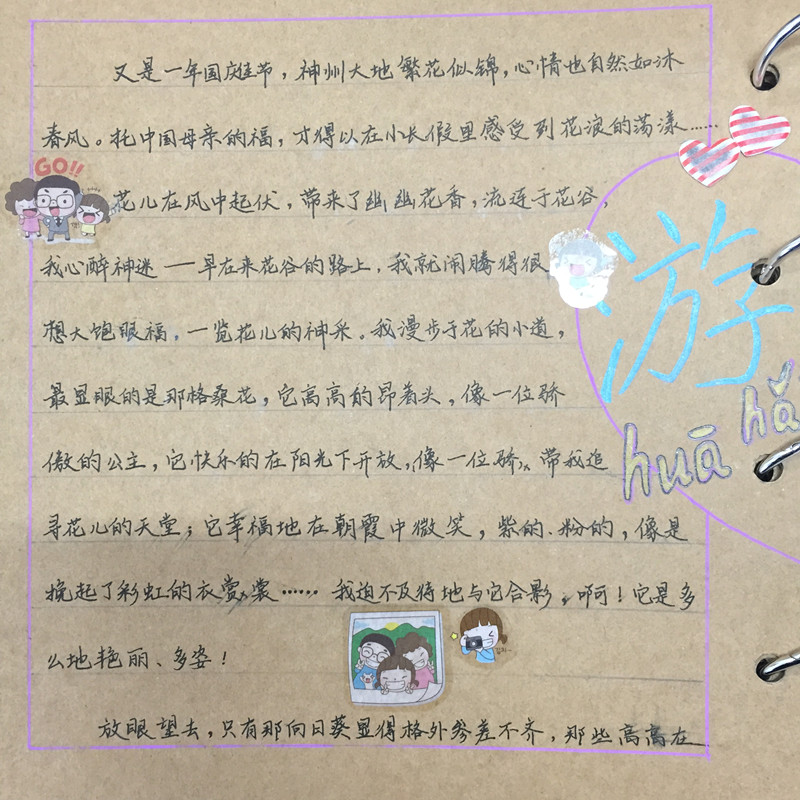 又是一年国庆节，神州大地繁花似锦，心情也自然如沐
春风。托中国母亲的福，才得以在小长假里感受到花浪的荡漾……
GO!!
花儿在风中起伏，带来了幽幽花香，流连于花谷，
我心醉神迷——早在来花谷的路上，我就闹腾得很
想大饱眼福，一览花儿的神采。我漫步于花的小道，
最显眼的是那格桑花，它高高的昂着头，像一位骄
傲的公主，它快乐的在阳光下开放，像一位骄，带我追
寻花儿的天堂；它幸福地在朝霞中微笑，紫的、粉的，像是
挽起了彩虹的衣裳……我迫不及待地与它合影。啊！它是多
么地艳丽、多姿！
放眼望去，只有那向日葵显得格外参差不齐，那些高高在
游
huā hǎ